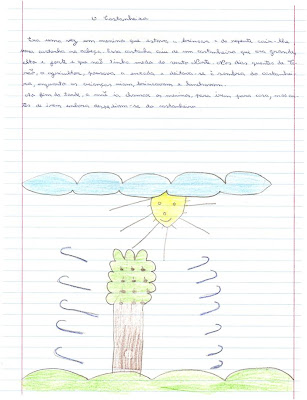 O Castanheiro
Era uma vez um menino que estava a brincar e de repente caiu-lhe
uma castanha na cabeça. Essa castanha caiu de um castanheiro que era grande,
alto e forte e que não tinha medo do vento Norte. Nos dias quentes de Ve-
rão, o agricultor, pousava a enxada e deitava-se à sombra do castanhei-
ro, enquanto as crianças riam, brincavam e
Ao fim da tarde, a mãe ia chamar os meninos, para irem para casa, mas an-
tes de irem embora despediam-se do castanheiro.